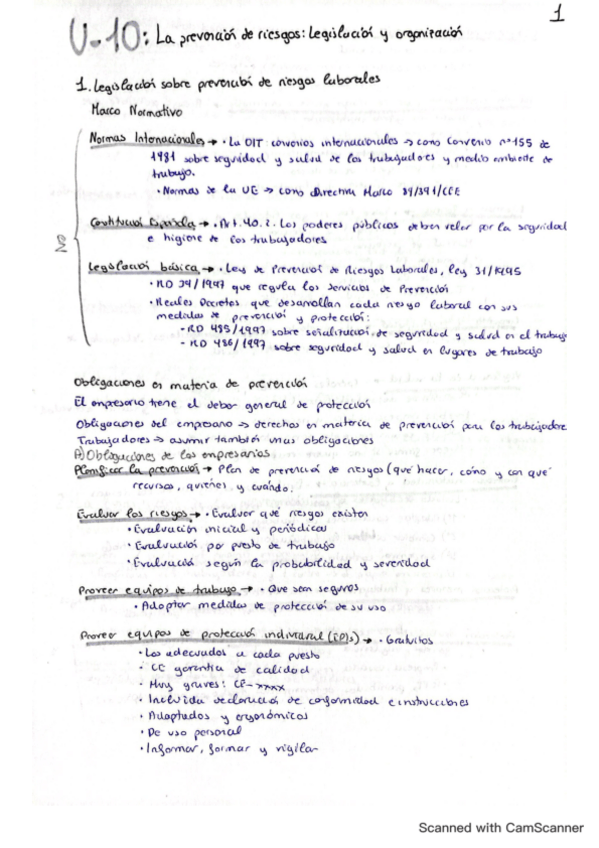 1
U-10: La prevención de riesgos: Legislación y organización
1. Legislación sobre prevención de riesgos laborales
Marco Normativo
Normas Internacionales → · La OIT convenios internacionales → como Convenio nº 155 de
1981 sobre seguridad y salud de los trabajadores y medio ambiente de
trabajo.
· Normas de la UE → como Directiva Marco 89/391/CEE
Constitución Española → · Art. 40.2. Los poderes públicos deben velar por la seguridad
e higiene de los trabajadores
Legislación básica → · Ley de Prevención de Riesgos Laborales, ley 31/1995
· RD 39/1997 que regula los Servicios de Prevención
· Reales Decretos que desarrollan cada riesgo laboral con sus
medidas de prevención y protección:
- RD 485/1997 sobre señalización de seguridad y salud en el trabajo
- RD 486/1997 sobre seguridad y salud en lugares de trabajo
Obligaciones en materia de prevención
El empresario tiene el deber general de protección
Obligaciones del empresario → derechos en materia de prevención para los trabajadores
Trabajadores → asumir también unas obligaciones
A) Obligaciones de los empresarios
Planificar la prevención → Plan de prevención de riesgos (qué hacer, cómo y con qué
recursos, quiénes y cuándo.
Evaluar los riesgos → · Evaluar qué riesgos existen
· Evaluación inicial y periódicas
· Evaluación por puesto de trabajo
· Evaluación según la probabilidad y severidad
Proveer equipos de trabajo → · Que sean seguros
· Adoptar medidas de protección de su uso
Proveer equipos de protección individual (EPIs) → · Gratuitos
· Los adecuados a cada puesto
· CE garantía de calidad
· Muy graves: CE-xxxx
· Incluida declaración de conformidad e instrucciones
· Adaptados y ergonómicos
· De uso personal
· Informar, formar y vigilar
Scanned with CamScanner